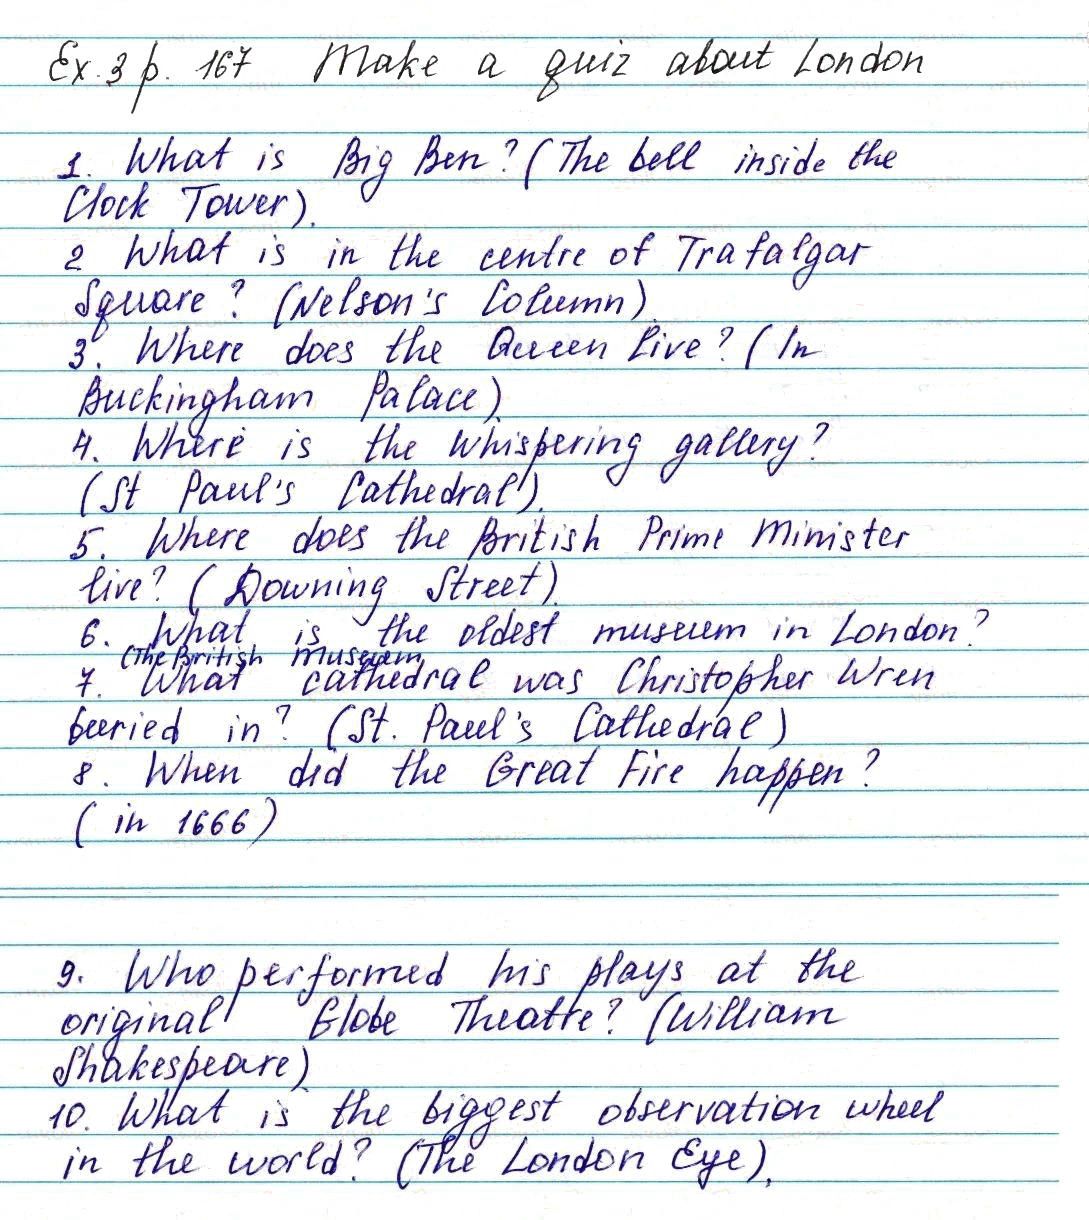 Ex. 3 p. 167 Make a quiz about London
1. What is Big Ben? (The bell inside the
Clock Tower).
2 What is in the centre of Trafalgar
Square? (Nelson's Column)
3. Where does the Queen live? (In
Buckingham Palace)
4. Where is the whispering gallery?
(St Paul's Cathedral).
5. Where does the British Prime Minister
live? (Downing Street)
6. What is the oldest museum in London?
(The British museum
7. What cathedral was Christopher Wren
buried in? (St. Paul's Cathedral)
8. When did the Great Fire happen?
(in 1666)
9. Who performed his plays at the
original Globe Theatre? (William
Shakespeare)
10. What is the biggest observation wheel
in the world? (The London Eye).